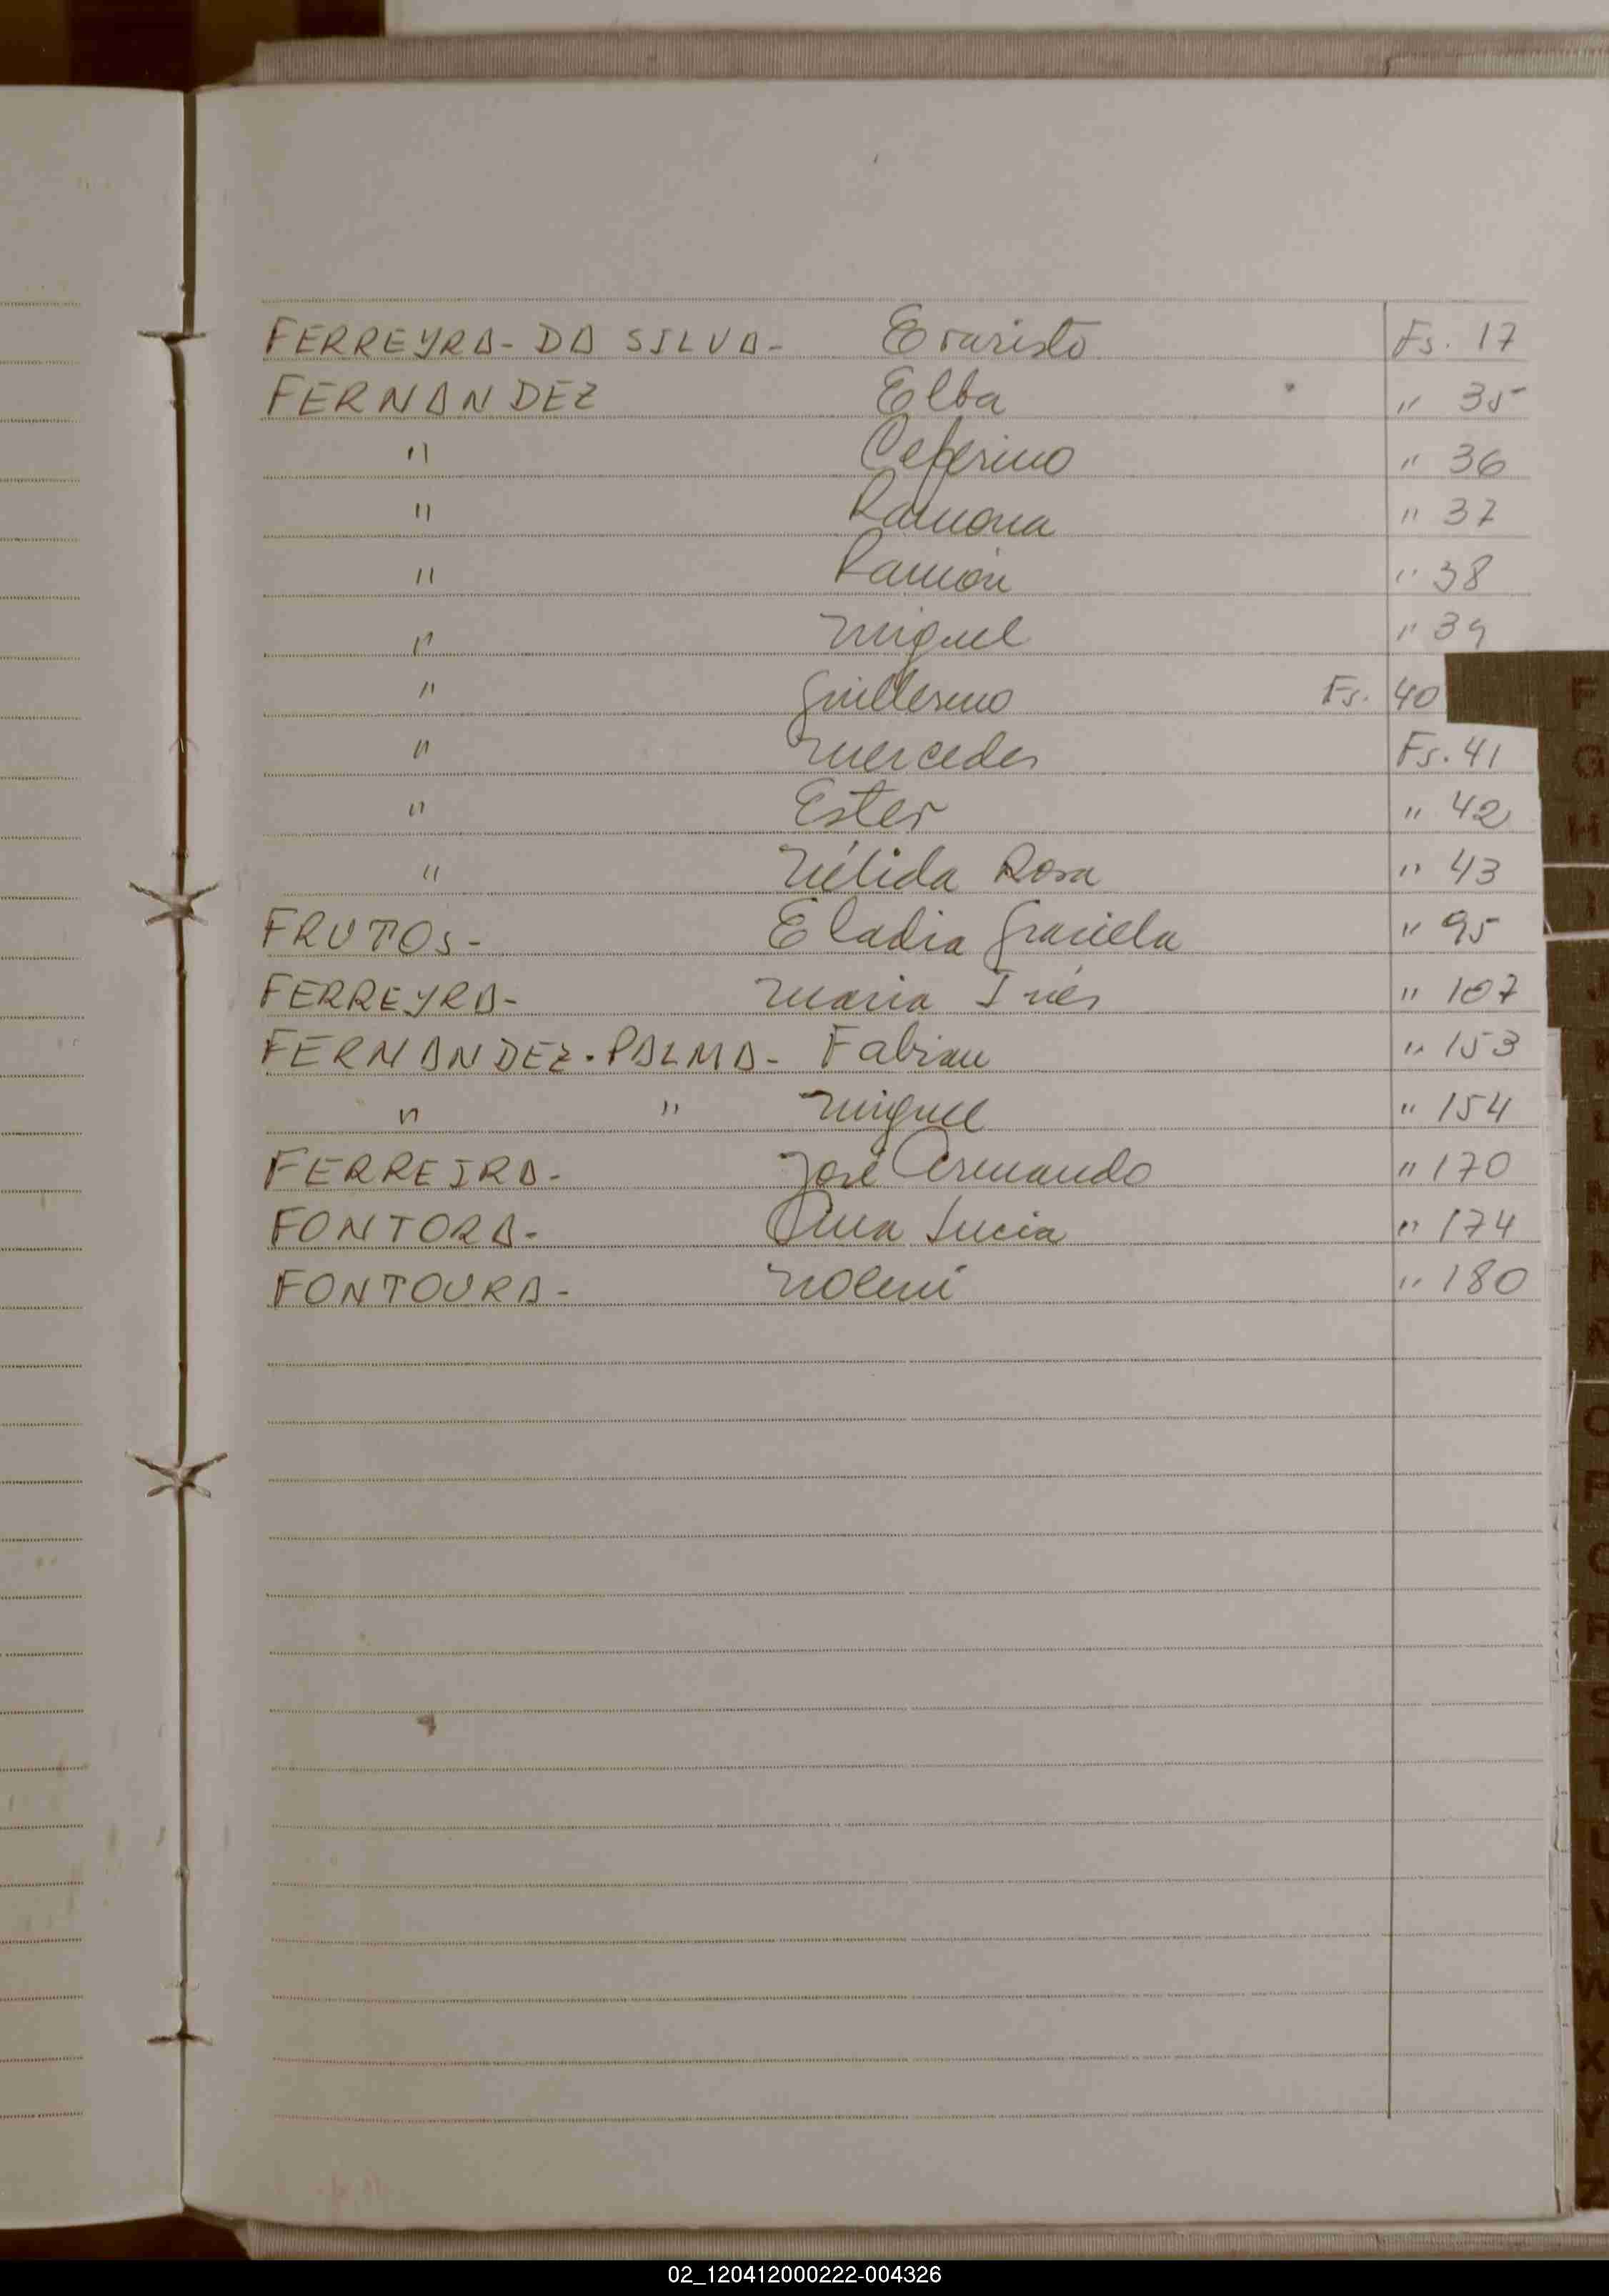 FERREYRA - DA SILVA - Evaristo Fs. 17
FERNANDEZ Elba " 35
" Ceferino " 36
" Ramona " 37
" Ramón " 38
" Miguel " 39
" Guillermo Fs. 40
" Mercedes Fs. 41
" Ester " 42
" Nélida Rosa " 43
FRUTOS - Eladia Graciela " 95
FERREYRA - Maria Inés " 107
FERNANDEZ - PALMA - Fabian " 153
" " Miguel " 154
FERREIRA - José Armando " 170
FONTORA - Ana Lucia " 174
FONTOURA - Noemi " 180
F
G
H
I
J
K
L
M
N
Ñ
O
P
Q
R
S
T
U
V
W
X
Y
Z
02_120412000222-004326